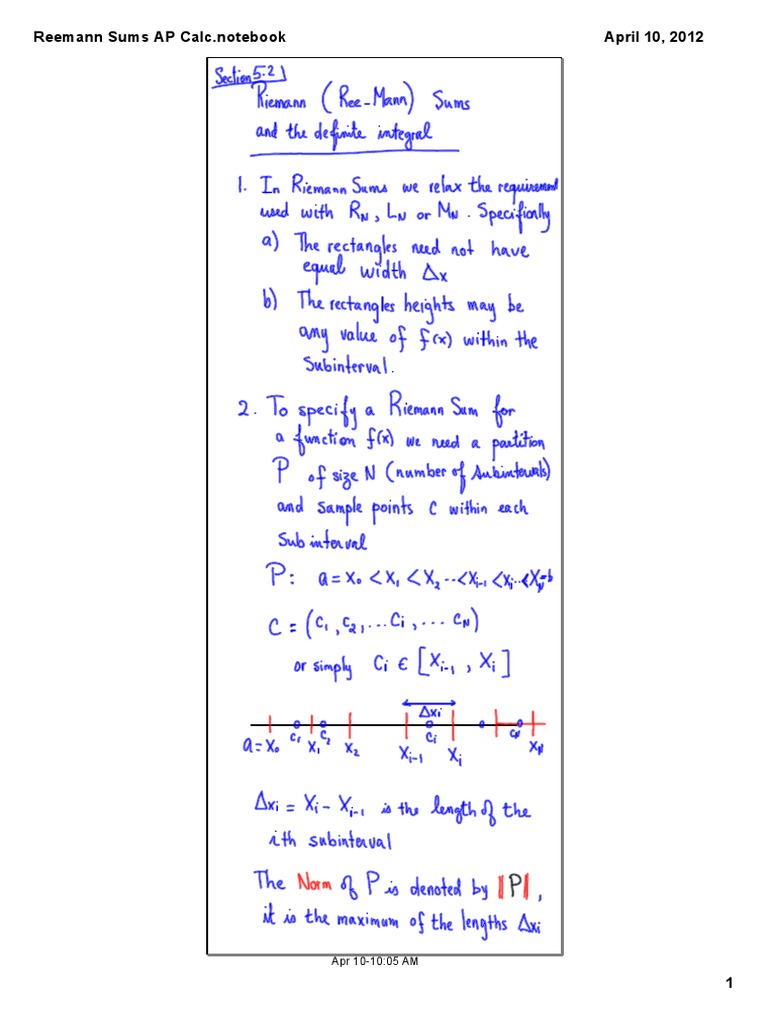 Reemann Sums AP Calc.notebook
April 10, 2012
Section 5.2
Riemann (Ree-Mann) Sums
and the definite integral
1. In Riemann Sums we relax the requirement
used with R_N, L_N or M_N. Specifically
a) The rectangles need not have
equal width Δx
b) The rectangles heights may be
any value of f(x) within the
Subinterval.
2. To specify a Riemann Sum for
a function f(x) we need a partition
P of size N (number of subintervals)
and sample points C within each
Subinterval
P: a = x₀ < x₁ < x₂ ... < xᵢ₋₁ < xᵢ ... < x_N = b
C = (c₁, c₂, ... cᵢ, ... c_N)
or simply cᵢ ∈ [xᵢ₋₁, xᵢ]
Δxᵢ
a = x₀ c₁ x₁ c₂ x₂ xᵢ₋₁ cᵢ xᵢ c_N x_N
Δxᵢ = xᵢ - xᵢ₋₁ is the length of the
ith subinterval
The Norm of P is denoted by ||P||,
it is the maximum of the lengths Δxᵢ
Apr 10-10:05 AM
1